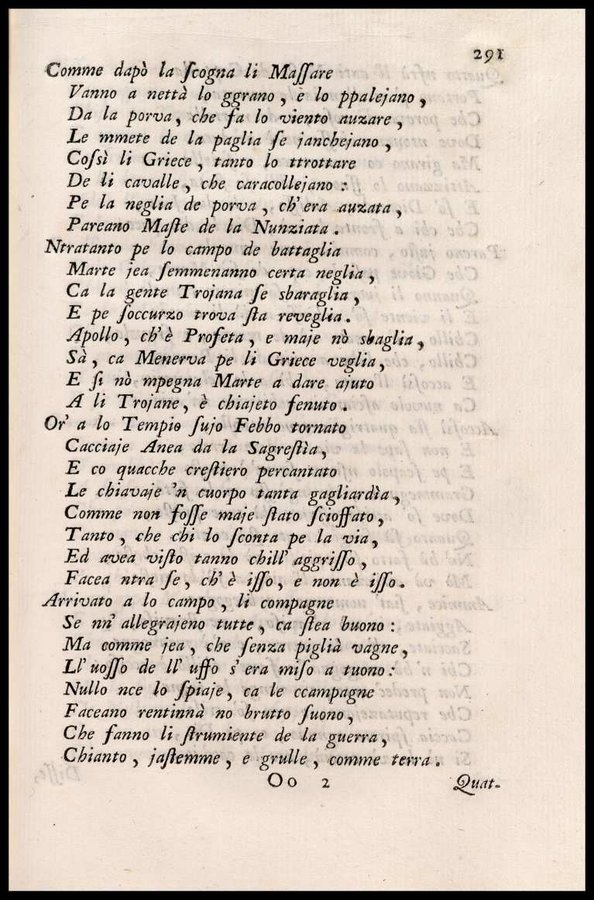 291
Comme dapò la ſcogna li Maſſare
Vanno a nettà lo ggrano, e lo ppalejano,
Da la porva, che fa lo viento auzare,
Le mmete de la paglia ſe janchejano,
Coſsì li Griece, tanto lo ttrottare
De li cavalle, che caracollejano:
Pe la neglia de porva, ch'era auzata,
Pareano Maſte de la Nunziata.
Ntratanto pe lo campo de battaglia
Marte jea ſemmenanno certa neglia,
Ca la gente Trojana ſe sbaraglia,
E pe ſoccurzo trova ſta reveglia.
Apollo, ch'è Profeta, e maje nò sbaglia,
Sà, ca Menerva pe li Griece veglia,
E ſi nò mpegna Marte a dare ajuto
A li Trojane, è chiajeto fenuto.
Or' a lo Tempio ſujo Febbo tornato
Cacciaje Anea da la Sagreſtia,
E co quacche creſtiero percantato
Le chiavaje 'n cuorpo tanta gagliardìa,
Comme non foſſe maje ſtato ſcioffato,
Tanto, che chi lo ſconta pe la via,
Ed avea viſto tanno chill' aggriſſo,
Facea ntra ſe, ch'è iſſo, e non è iſſo.
Arrivato a lo campo, li compagne
Se nn' allegrajeno tutte, ca ſtea buono:
Ma comme jea, che ſenza piglià vagne,
Ll' uoſſo de ll' uffo s'era miſo a tuono:
Nullo nce lo ſpiaje, ca le ccampagne
Faceano rentinnà no brutto ſuono,
Che fanno li ſtrumiente de la guerra,
Chianto, jaſtemme, e grulle, comme terra.
Oo 2
Quat-